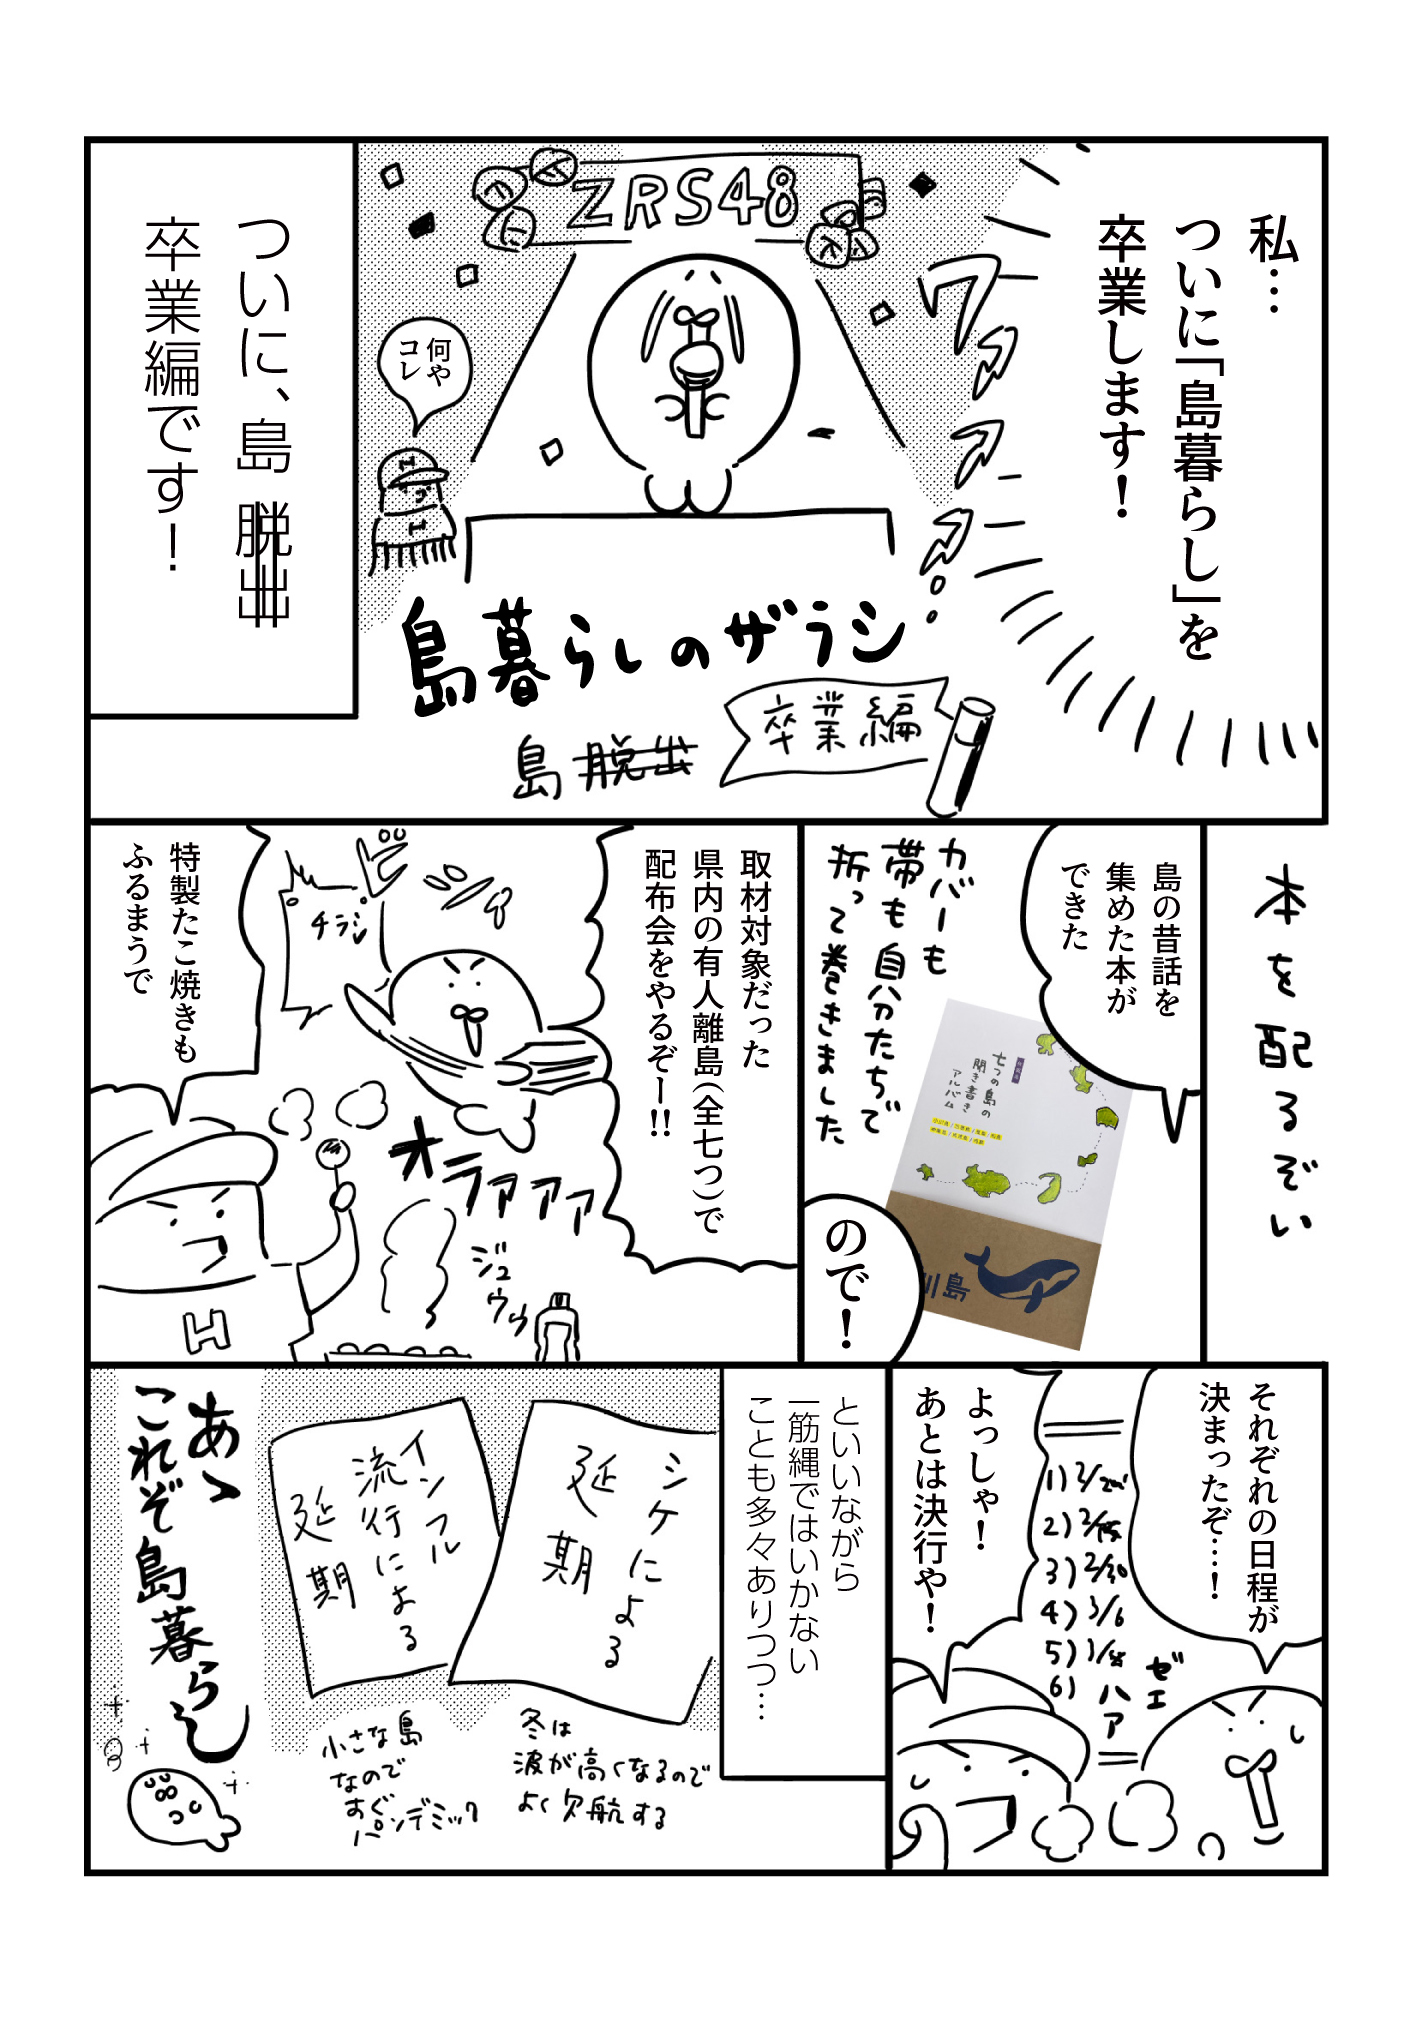 私…
ついに「島暮らし」を
卒業します！
ZRS48
ワァァァァ…
何や
コレ
島暮らしのザラシ
島脱出
卒業編
ついに、島脱出
卒業編です！
本を配るぞい
島の昔話を
集めた本が
できた
カバーも
帯も自分たちで
折って巻きました
七つの島の
聞き書き
アルバム
島
ので！
取材対象だった
県内の有人離島（全七つ）で
配布会をやるぞー!!
チラシ
オラァァァ
ジュウゥ
特製たこ焼きも
ふるまうで
H
それぞれの日程が
決まったぞ……！
1)
2)
3) 2/30
4) 3/6
5)
6)
ゼエ
ハア
よっしゃ！
あとは決行や！
といいながら
一筋縄ではいかない
ことも多々ありつつ…
シケによる
延期
インフル
流行による
延期
冬は
波が高くなるので
よく欠航する
小さな島
なので
すぐ
パンデミック
あゝ
これぞ島暮らし